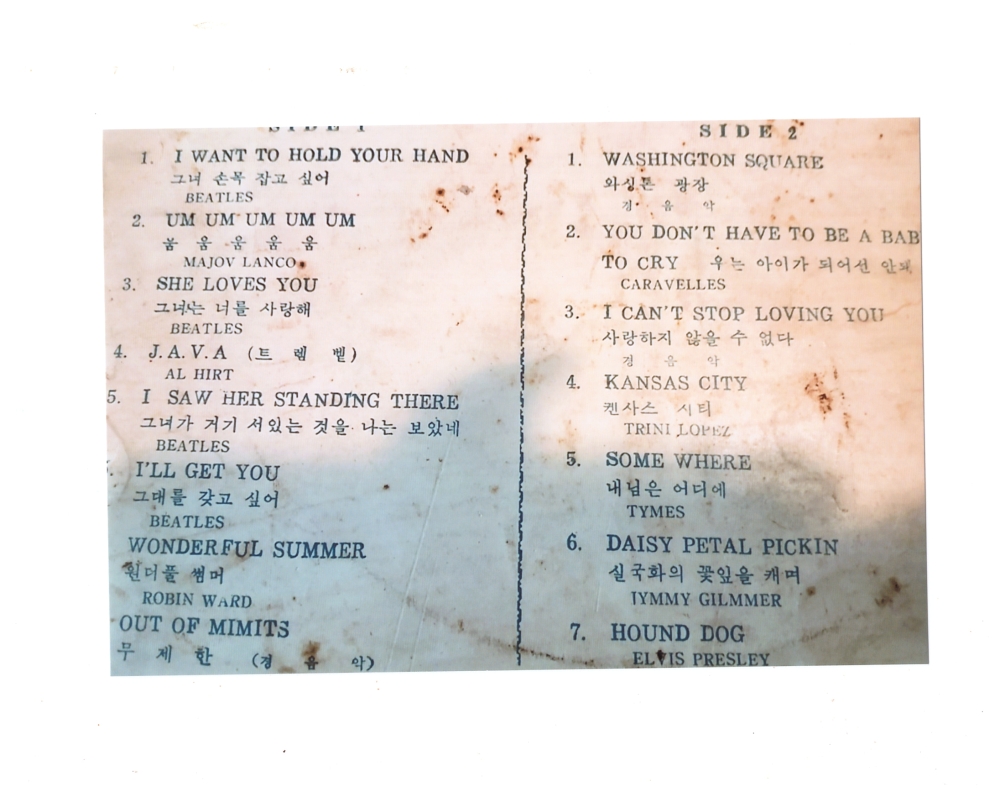 SIDE 1
1. I WANT TO HOLD YOUR HAND
그녀 손목 잡고 싶어
BEATLES
2. UM UM UM UM UM
움 움 움 움
MAJOV LANCO
3. SHE LOVES YOU
그녀는 너를 사랑해
BEATLES
4. J.A.V.A (트 렘 벹)
AL HIRT
5. I SAW HER STANDING THERE
그녀가 거기 서있는 것을 나는 보았네
BEATLES
I'LL GET YOU
그대를 갖고 싶어
BEATLES
WONDERFUL SUMMER
원더풀 썸머
ROBIN WARD
OUT OF MIMITS
무 제 한 (경 음 악)
SIDE 2
1. WASHINGTON SQUARE
와싱톤 광장
경 음 악
2. YOU DON'T HAVE TO BE A BAB
TO CRY 우는 아이가 되어선 안돼
CARAVELLES
3. I CAN'T STOP LOVING YOU
사랑하지 않을 수 없다
경 음 악
4. KANSAS CITY
켄사스 시티
TRINI LOPEZ
5. SOME WHERE
내님은 어디에
TYMES
6. DAISY PETAL PICKIN
실국화의 꽃잎을 캐며
JYMMY GILMMER
7. HOUND DOG
ELVIS PRESLEY